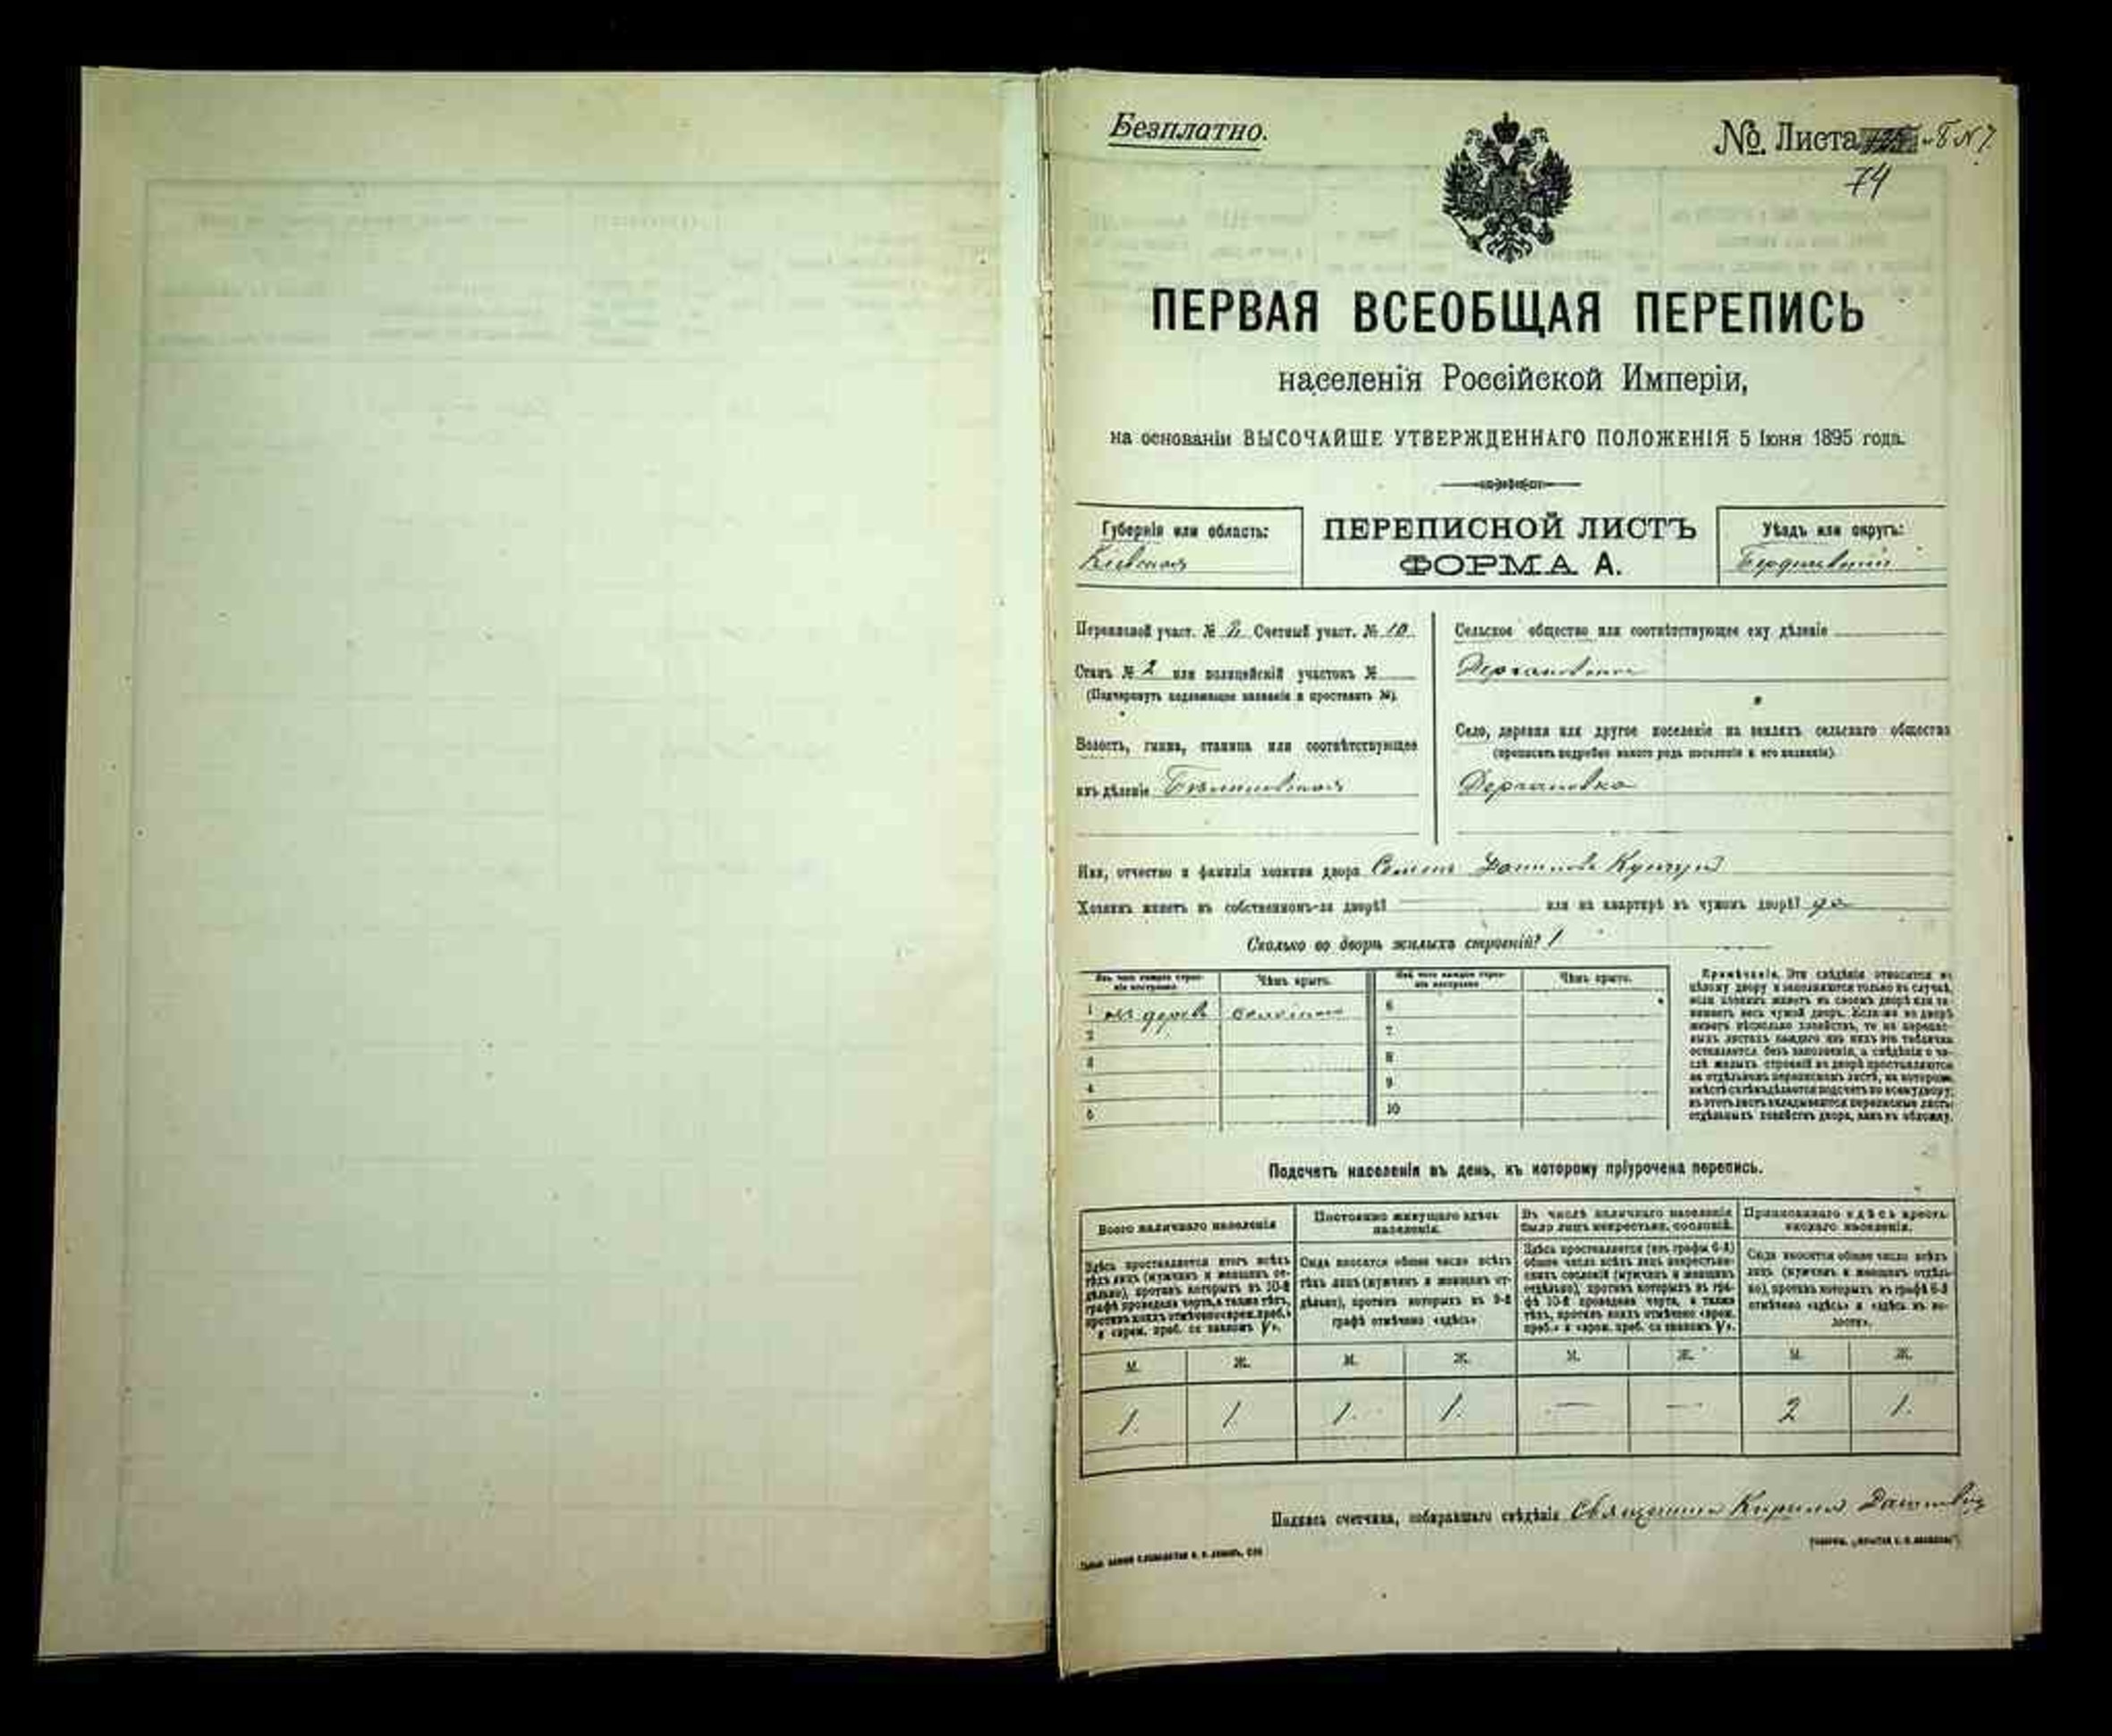 Безплатно.
№. Листа
74
ПЕРВАЯ ВСЕОБЩАЯ ПЕРЕПИСЬ
населенія Россійской Имперіи,
на основаніи ВЫСОЧАЙШЕ УТВЕРЖДЕННАГО ПОЛОЖЕНІЯ 5 Іюня 1895 года.
Губернія или область:
Кіевская
ПЕРЕПИСНОЙ ЛИСТЪ
ФОРМА А.
Уѣздъ или округъ:
Бердичевскій
Переписной участ. № 2 Счетный участ. № 10.
Станъ № 2 или полицейскій участокъ №
(Подчеркнуть подлежащее названіе и проставить №).
Волость, гмина, станица или соотвѣтствующее
имъ дѣленіе
Сельское общество или соотвѣтствующее ему дѣленіе
Село, деревня или другое поселеніе на земляхъ сельскаго общества
(прописать подробно какого рода поселеніе и его названіе).
Имя, отчество и фамилія хозяина двора
Хозяинъ живетъ въ собственномъ-ли дворѣ? или на квартирѣ въ чужомъ дворѣ? да
Сколько во дворѣ жилыхъ строеній? 1
Изъ чего каждое строеніе построено
Чѣмъ крыто.
Изъ чего каждое строеніе построено
Чѣмъ крыто.
1 изъ дерева соломою
2
3
4
5
6
7
8
9
10
Примѣчаніе. Эти свѣдѣнія относятся къ
цѣлому двору и заполняются только въ случаѣ,
если хозяинъ живетъ въ своемъ дворѣ или за-
нимаетъ весь чужой дворъ. Если-же во дворѣ
живетъ нѣсколько хозяйствъ, то на перепис-
ныхъ листахъ каждаго изъ нихъ эта табличка
оставляется безъ заполненія, а свѣдѣнія о чи-
слѣ жилыхъ строеній во дворѣ проставляются
на отдѣльномъ переписномъ листѣ, на которомъ
вмѣстѣ съ тѣмъ дѣлается подсчетъ по всему двору;
въ этотъ листъ вкладываются переписные листы
отдѣльныхъ хозяйствъ двора, какъ въ обложку.
Подсчетъ населенія въ день, къ которому пріурочена перепись.
Всего наличнаго населенія
Здѣсь проставляется итогъ всѣхъ
тѣхъ лицъ (мужчинъ и женщинъ от-
дѣльно), противъ которыхъ въ 10-й
графѣ проведена черта, а также тѣхъ,
противъ коихъ отмѣчено «врем. преб.»
и «врем. преб. со знакомъ V».
Постоянно живущаго здѣсь
населенія.
Сюда вносится общее число всѣхъ
тѣхъ лицъ (мужчинъ и женщинъ от-
дѣльно), противъ которыхъ въ 9-й
графѣ отмѣчено «здѣсь»
Въ числѣ наличнаго населенія
было лицъ некрестьян. сословій.
Здѣсь проставляется (изъ графы 6-й)
общее число всѣхъ лицъ некрестьян-
скихъ сословій (мужчинъ и женщинъ
отдѣльно), противъ которыхъ въ гра-
фѣ 10-й проведена черта, а также
тѣхъ, противъ коихъ отмѣчено «врем.
преб.» и «врем. преб. со знакомъ V».
Приписаннаго здѣсь кресть-
янскаго населенія.
Сюда вносится общее число всѣхъ
лицъ (мужчинъ и женщинъ отдѣль-
но), противъ которыхъ въ графѣ 8-й
отмѣчено «здѣсь» и «здѣсь въ во-
лости».
М. Ж. М. Ж. М. Ж. М. Ж.
1. 1 1. 1. — — 2 1.
Подпись счетчика, собиравшаго свѣдѣнія Священникъ Кириллъ